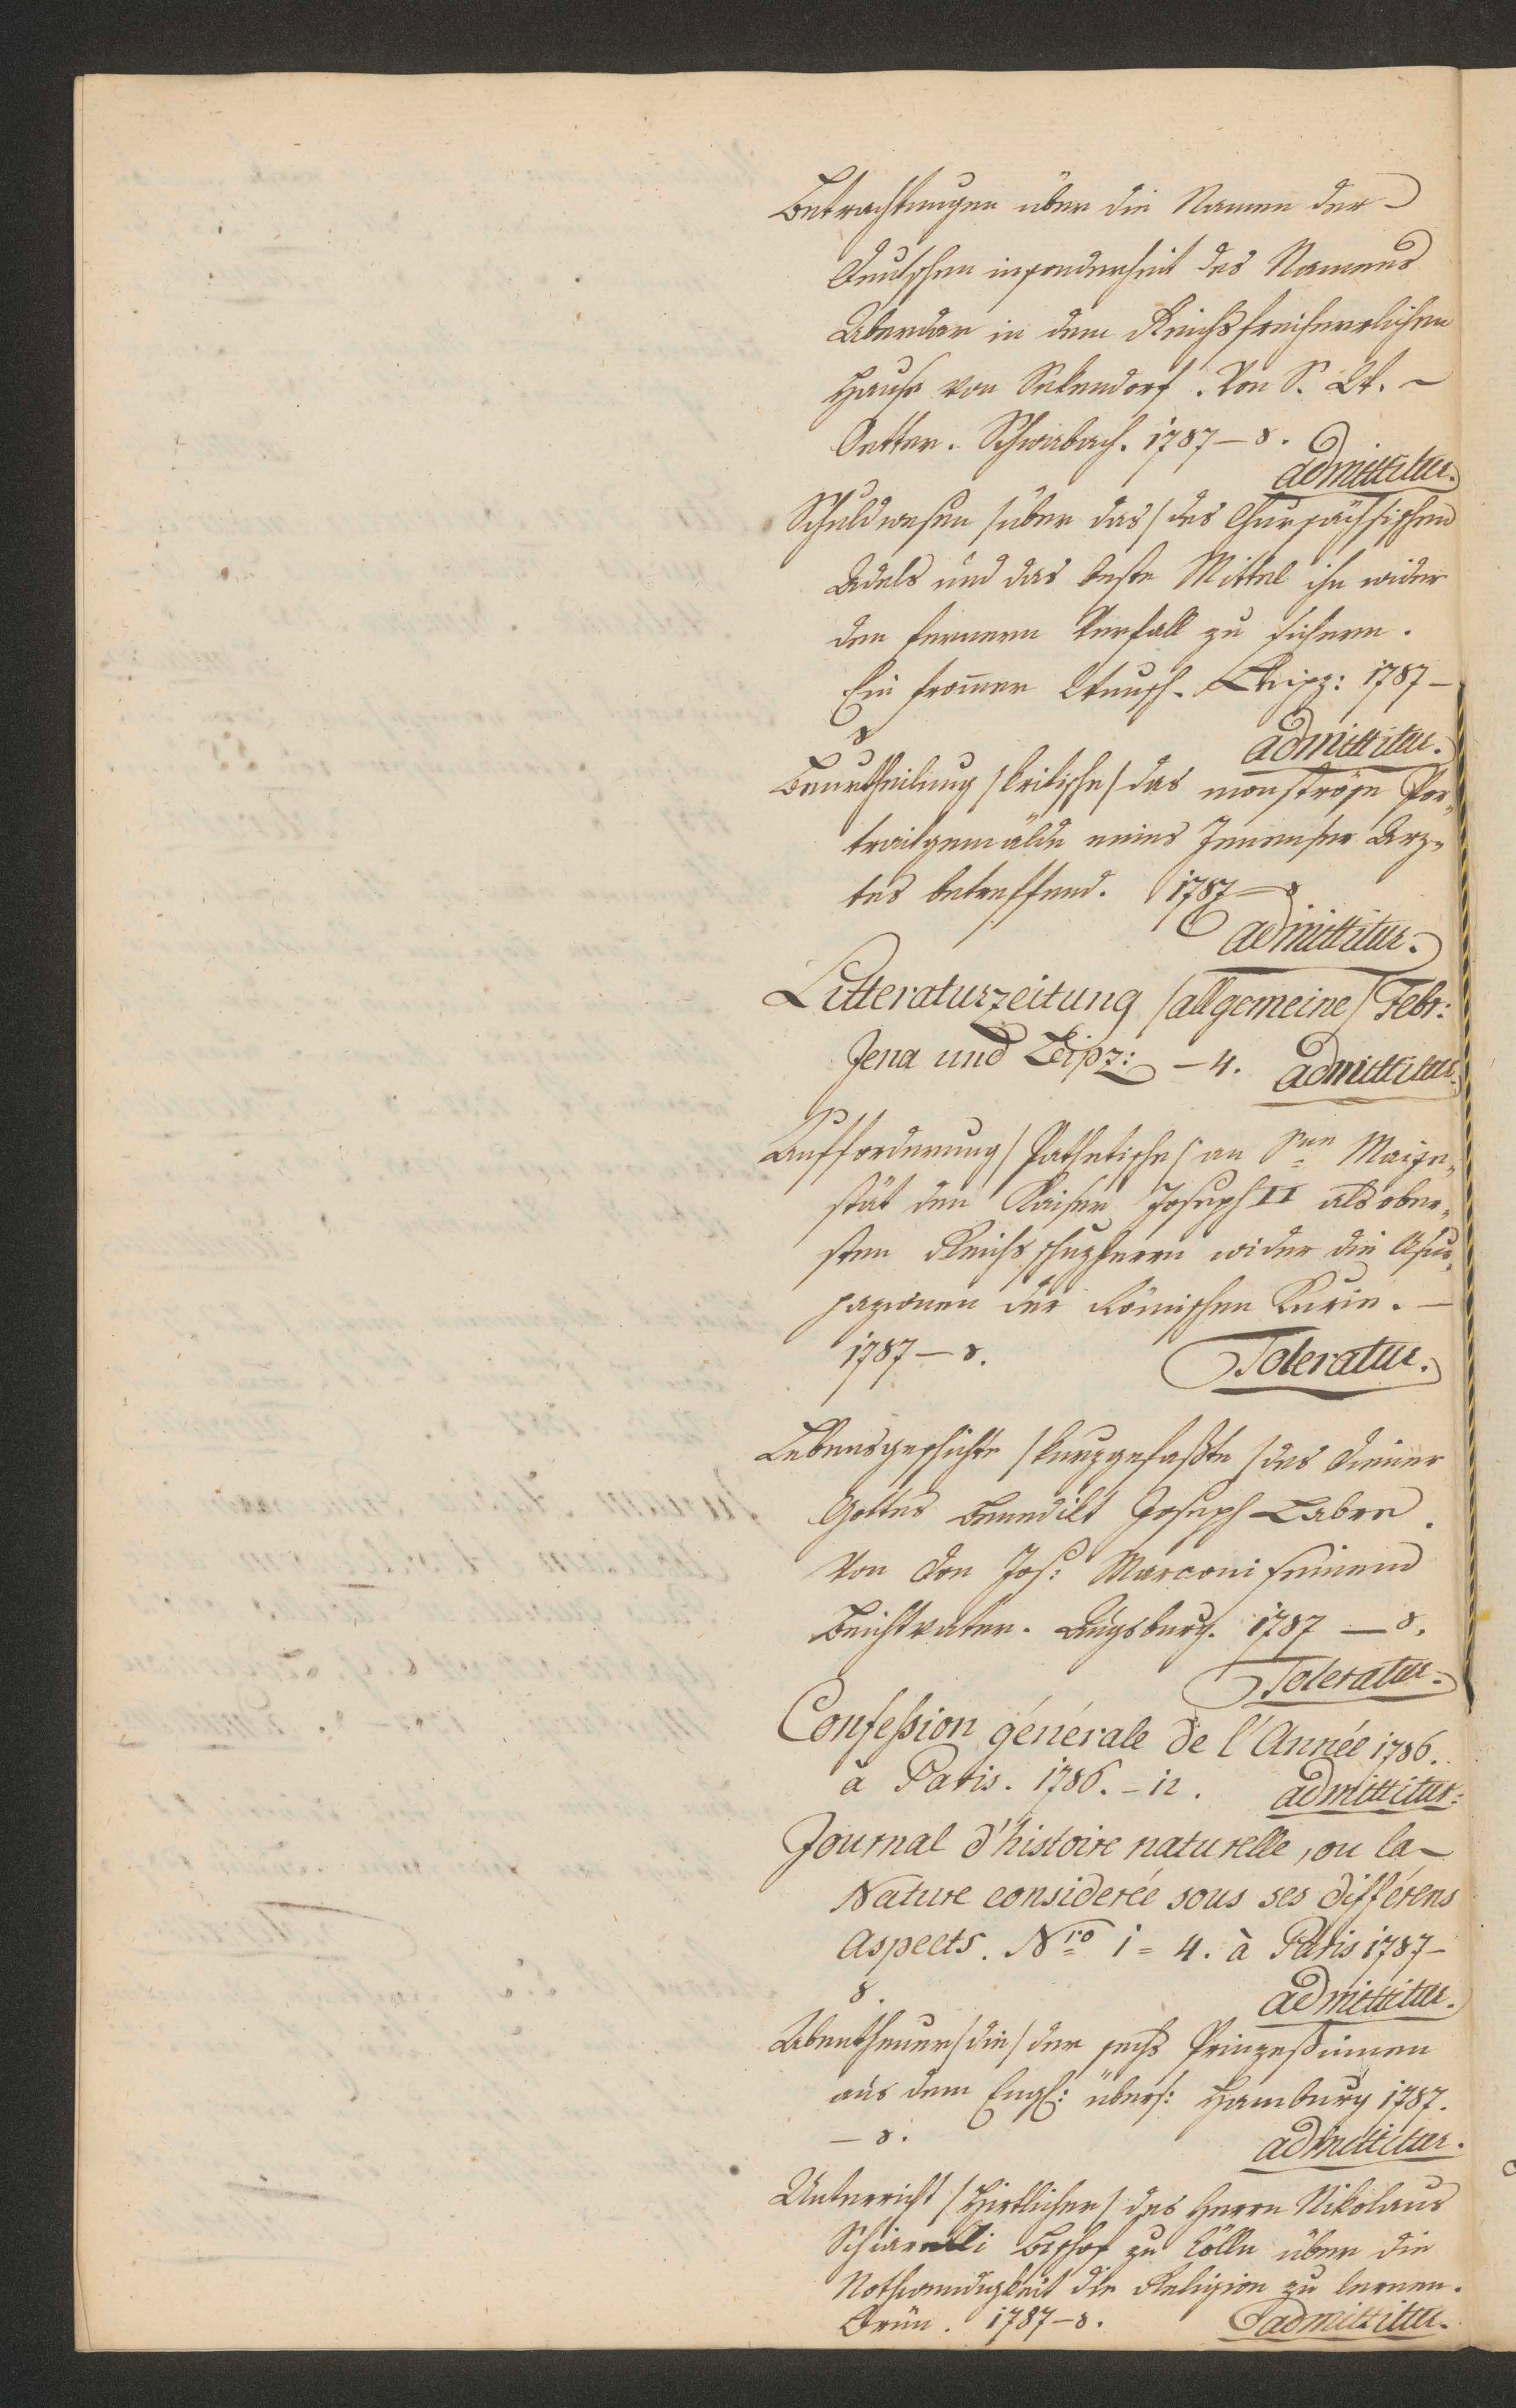 Betrachtungen über die Namen der
Deutschen insonderheit des Namens
Aberdar in dem Reichsfreiherrlichen
Hause von Sekendorf. Von S. W.
Oetter. Schwabach. 1787 – 8.
admittitur.
Schuldwesen /über das/ des Chursächsischen
Adels und das beste Mittel ihn wider
den fernern Verfall zu sichern.
Ein from̅er Wunsch. Leipz: 1787 –
8
admittitur.
Beurtheilung /kritische/ das monströse Por„
traitgemälde eines Jenenser Arz„
tes betreffend. 1787 – 8
admittitur.
Litteraturzeitung /allgemeine/ Febr:
Jena und Leipz: – 4. admittitur.
Aufforderung /Pathetische/ an Sne Maije„
stät den Kaiser Joseph II als ober„
sten Reichsschuzherrn wider die Usur„
pazionen der Römischen Kurie. –
1787 – 8. Toleratur.
Lebensgeschichte /kurzgefaßte/ des Diener
Gottes Benedikt Joseph Labre.
Von Don Jos: Marconi seinem
Beichtvater. Augsburg. 1787 – 8.
Toleratur.
Confeßion générale de l'Année 1786.
à Paris. 1786. – 12. admittitur.
Journal d'histoire naturelle, ou la
Nature considerée sous ses différens
Aspects. Nro 1 = 4. à Paris 1787 –
8. admittitur.
Abentheuer /die/ der sechs Prinzeßinnen
aus dem Engl: übers: Hamburg 1787.
– 8. admittitur.
Unterricht /Hirtlicher/ des Herrn Nikolaus
Bischof zu Cölln über die
Nothwendigkeit die Religion zu lernen.
Brün. 1787 – 8. admittitur.